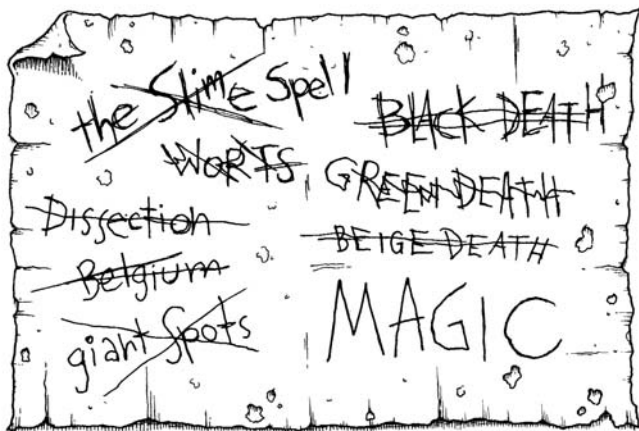 the Slime Spell
WORTS
Dissection
Belgium
giant Spots
BLACK DEATH
GREEN DEATH
BEIGE DEATH
MAGIC